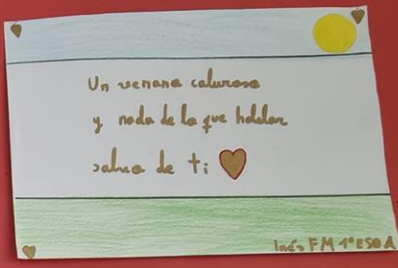 Un verano caluroso
y nada de lo que hablar
salvo de ti
Inés F M 1º ESO A